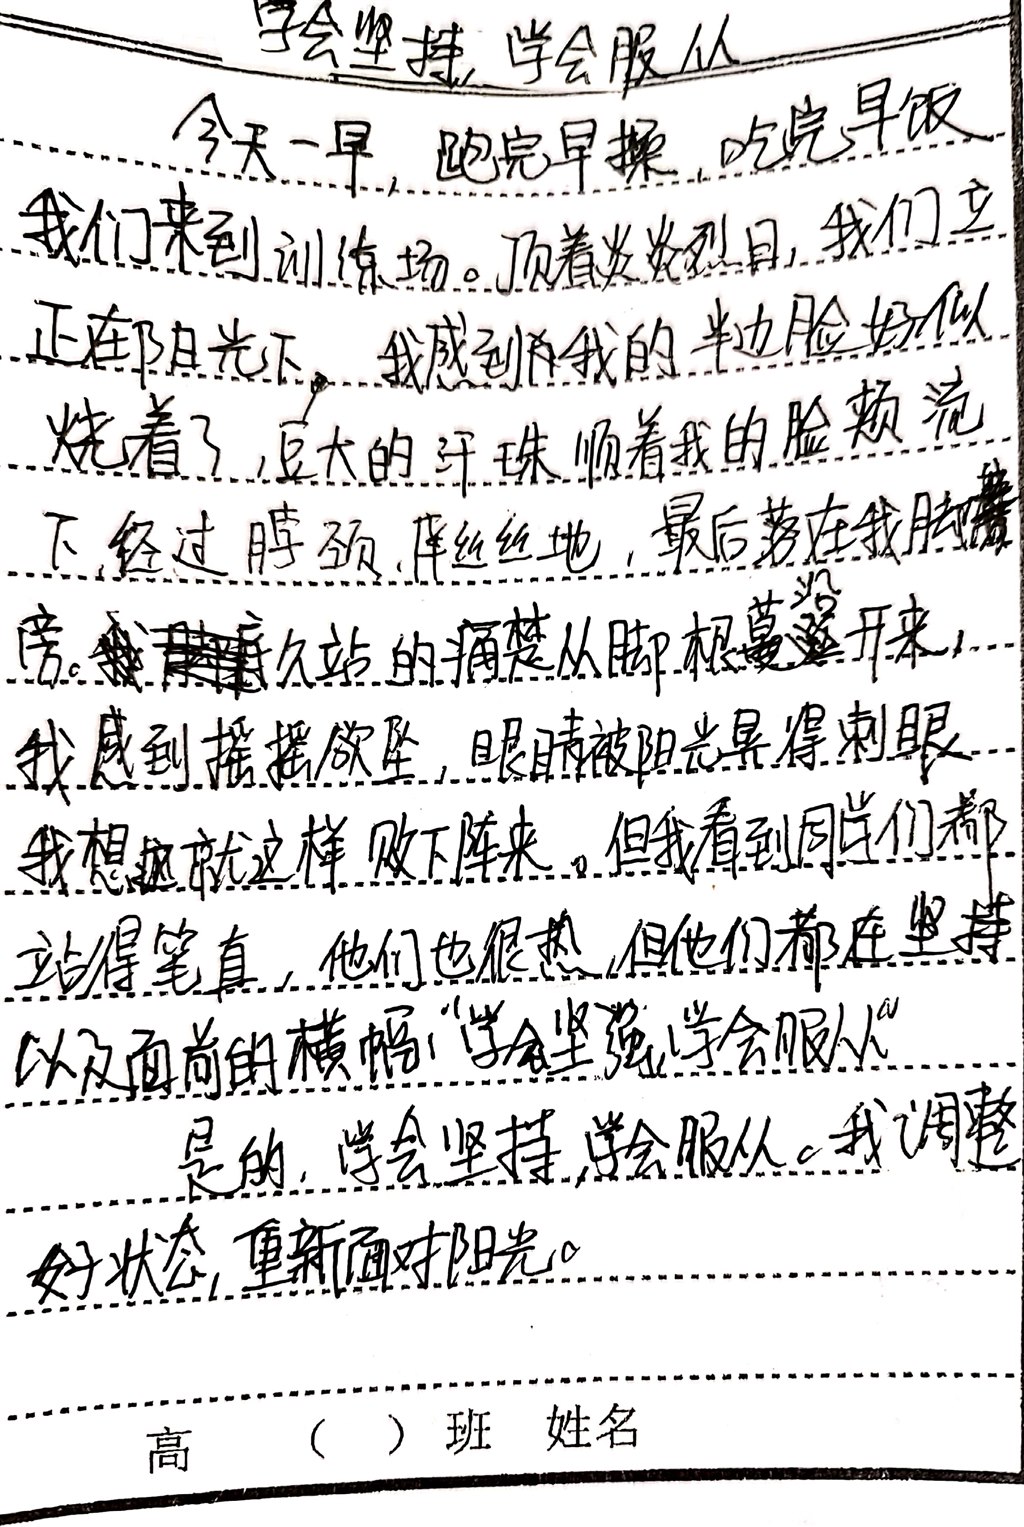 学会坚持,学会服从
今天一早,跑完早操,吃完早饭
我们来到训练场。顶着炎炎烈日,我们立
正在阳光下。我感到我的半边脸好似
烧着了,豆大的汗珠顺着我的脸颊流
下,经过脖颈,丝丝地,最后落在我脚
旁。久站的痛楚从脚根蔓沿开来,
我感到摇摇欲坠,眼睛被阳光晃得刺眼
我想就这样败下阵来。但我看到同学们都
站得笔直,他们也很热,但他们都在坚持
以及面前的横幅,“学会坚强,学会服从”
是的,学会坚持,学会服从。我调整
好状态,重新面对阳光。
高 ( )班 姓名